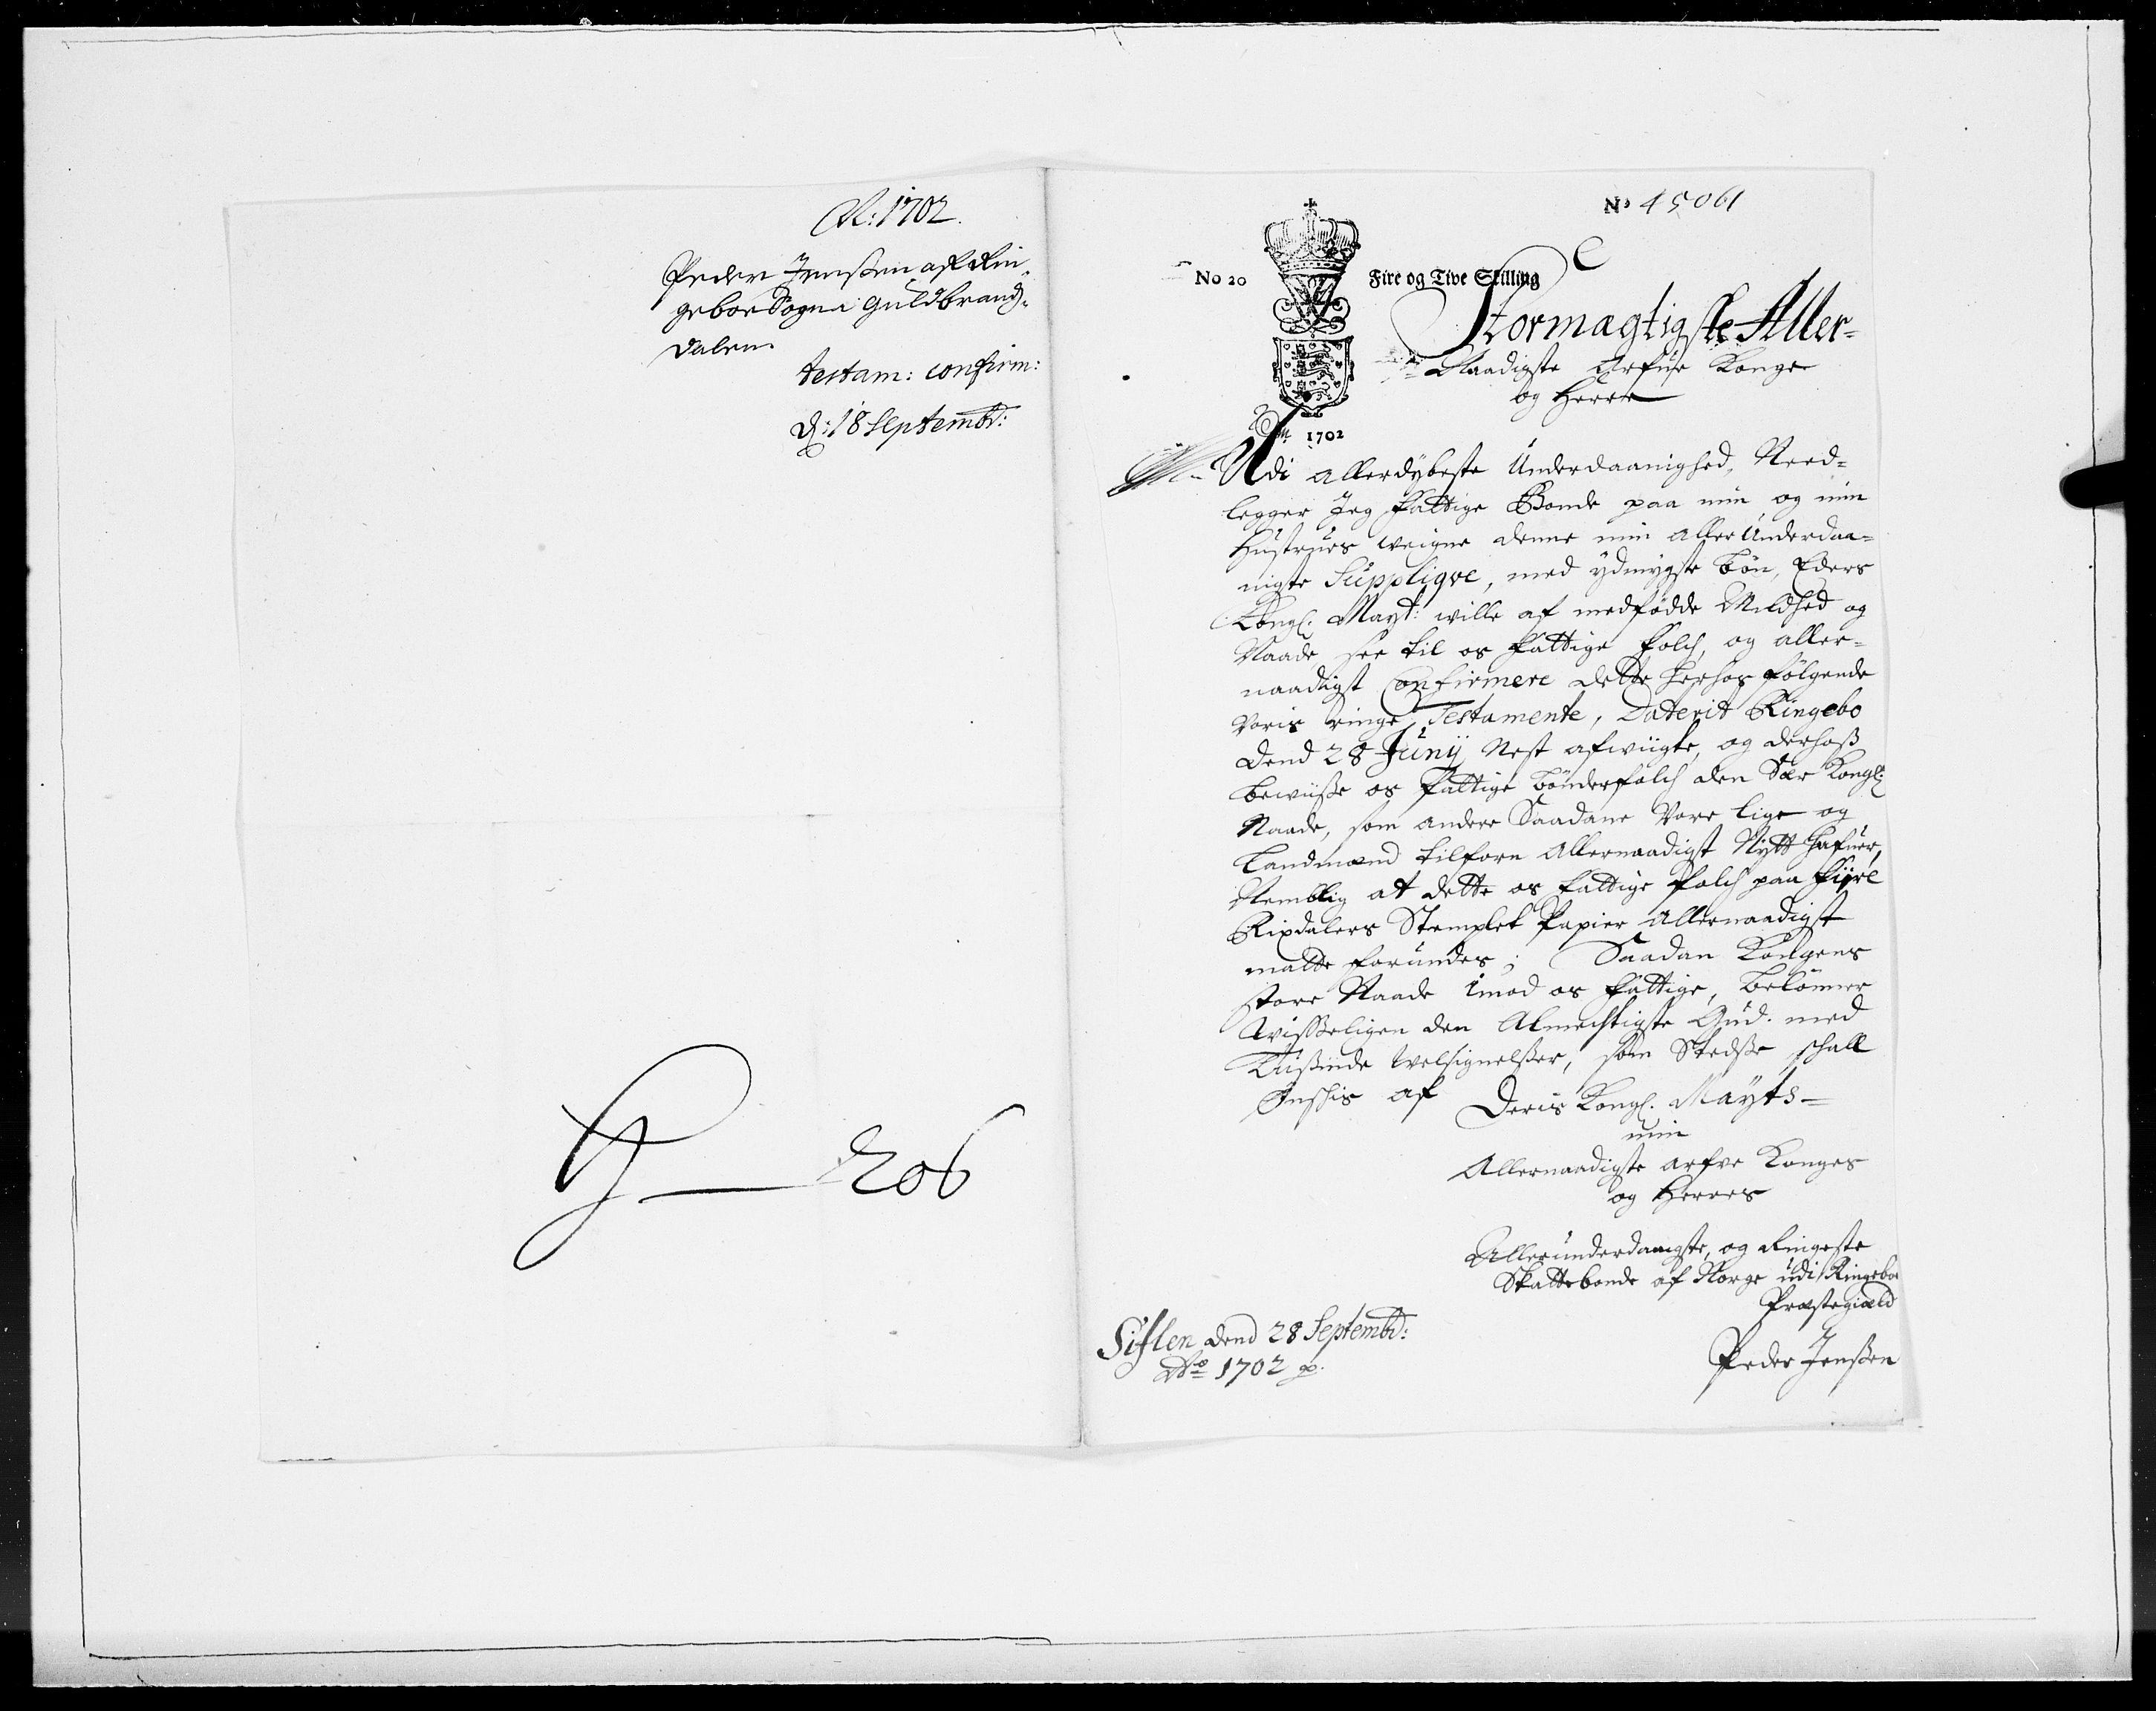 A: 1702.
Peder Jenssen af Rin-
geboe Sogn i Guldbrands-
dalen.
testam: confirm:
d: 18 Septembr:
206
No 45061
No 20
Fire og Tive Skilling
Stormægtigste Aller-
Naadigste Arfve Konge
og Herre
1702
Udi allerdybeste Underdaanighed, Need-
legger Jeg fattige Bonde paa min og min
Hustrues weigne denne min aller Underdaa-
nigste Supplique, med ydmygste bøn, Eders
Kongl. Mayt: wille af medfødde Mildhed og
Naade see til os fattige folch, og aller-
naadigst Confirmere dette herhos følgende
voris ringe Testamente, Daterit Ringebo
dend 28 Junij Nest afwiigte, og derhoß
bewiisse os fattige bønderfolch den Stor Kongl:
Naade, som andre Saadane Vore lige og
Landmænd tilforn Allernaadigst Nytt hafuer,
Nemblig at dette os fattige folch paa fiire
Rixdalers Stemplet Papier Allernaadigst
matte forundes; Saadan Kongens
store Naade imod os fattige, belønner
Wisseligen den Almechtigste Gud med
tusinde Velsignelßer, som Stedße schall
Ønschis af
Deris Kongl. Mayts
min
Allernaadigste arfve Konges
og Herres
Allerunderdanigste, og Ringeste
Skattebonde af Norge udi Ringeboe
Præstegiæld
Peder Jenßen
dend 28 Septembr:
Ao 1702